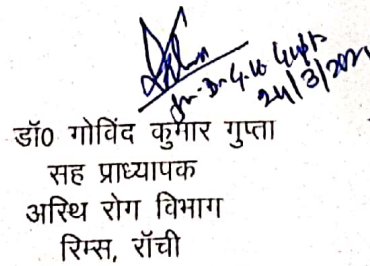 Dr. G. K. Gupta
24/3/202
डॉ० गोविंद कुमार गुप्ता
सह प्राध्यापक
अस्थि रोग विभाग
रिम्स, रॉची